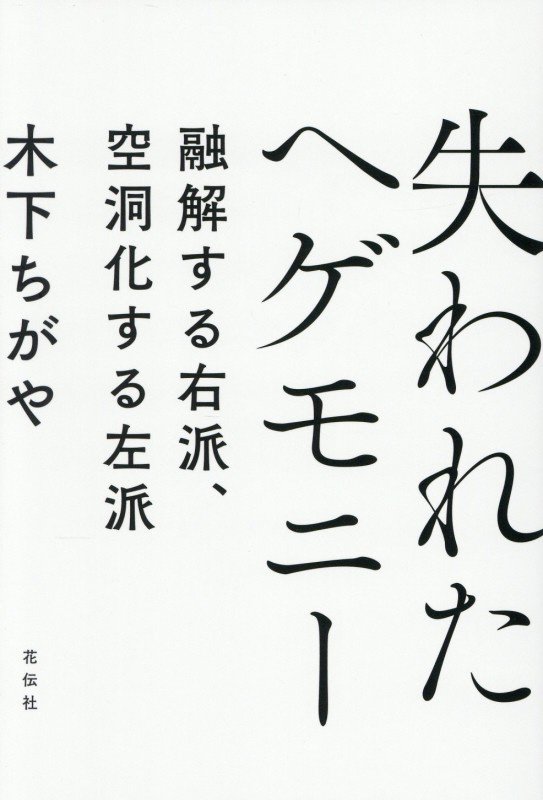 失われた
ヘゲモニー
融解する右派、
空洞化する左派
木下ちがや
花伝社